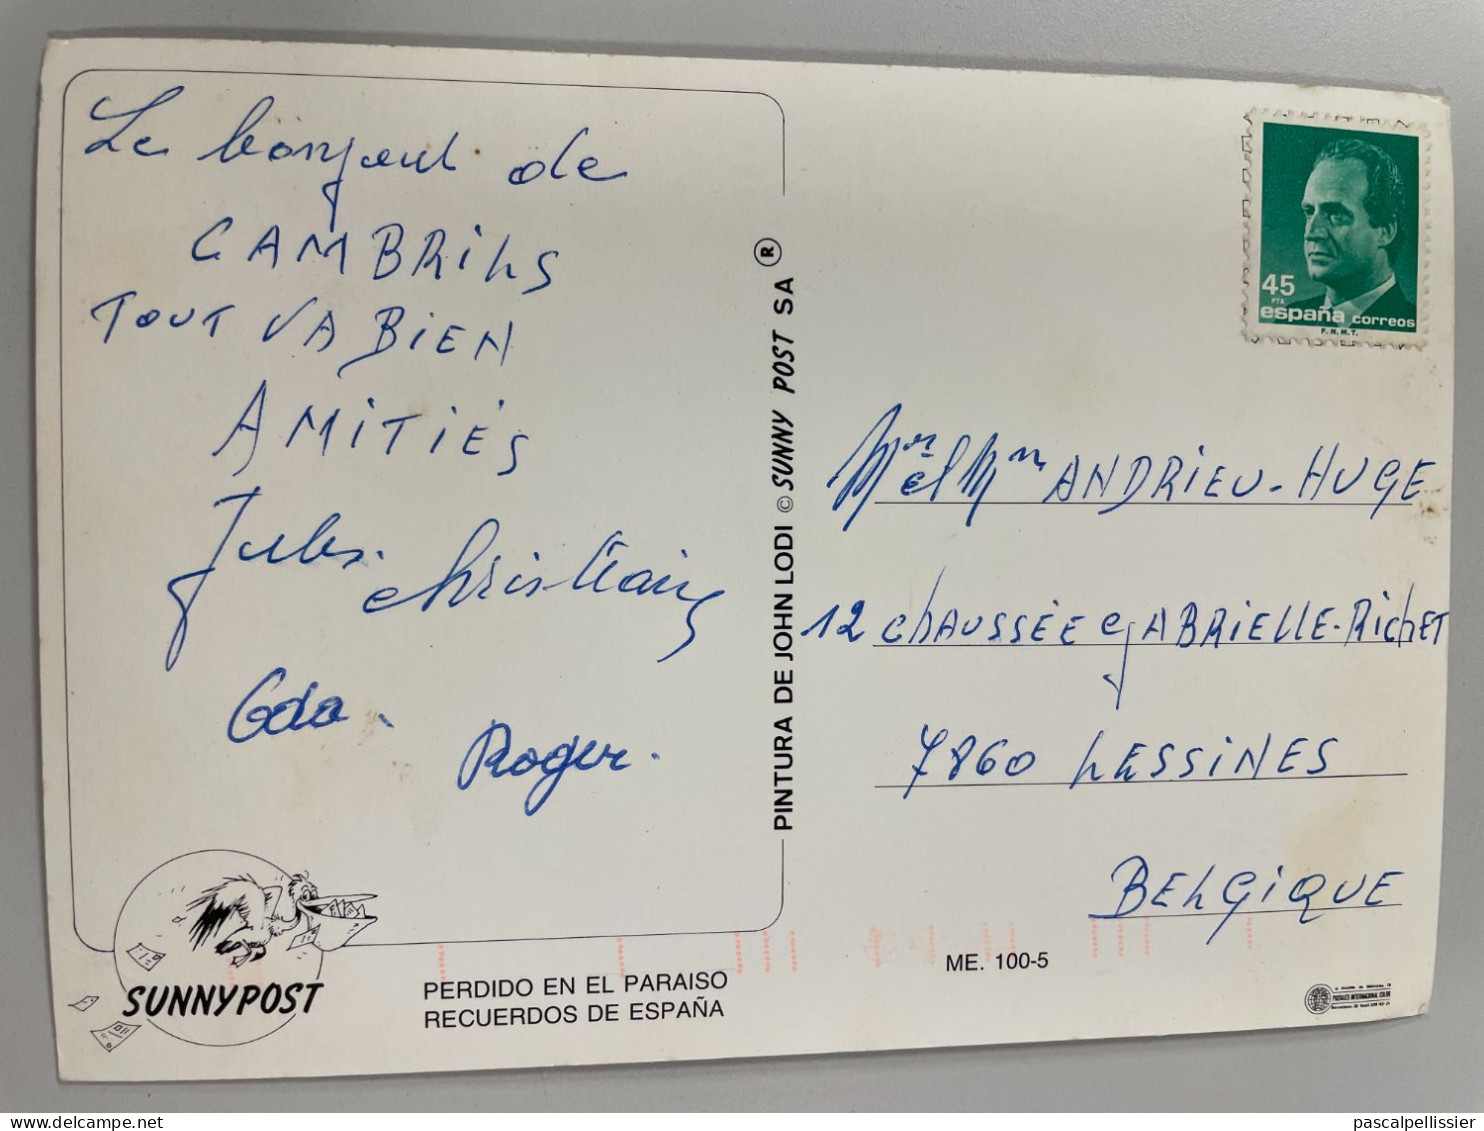 Le bonjour de
CAMBRiLS
TOUT VA BiEN
AMiTiÉS
Jules. Christiane
Eda.
Roger.
SUNNYPOST
PERDIDO EN EL PARAISO
RECUERDOS DE ESPAÑA
PINTURA DE JOHN LODI © SUNNY POST SA ®
45
PTA
españa correos
F.N.M.T.
Mr et Mm ANDRiEU-HUGE
12 chAUSSÉE GABRiELLE-RichET
7860 LESSiNES
BELGiQUE
ME. 100-5
POSTALES INTERNACIONAL COLOR
pascalpellissier